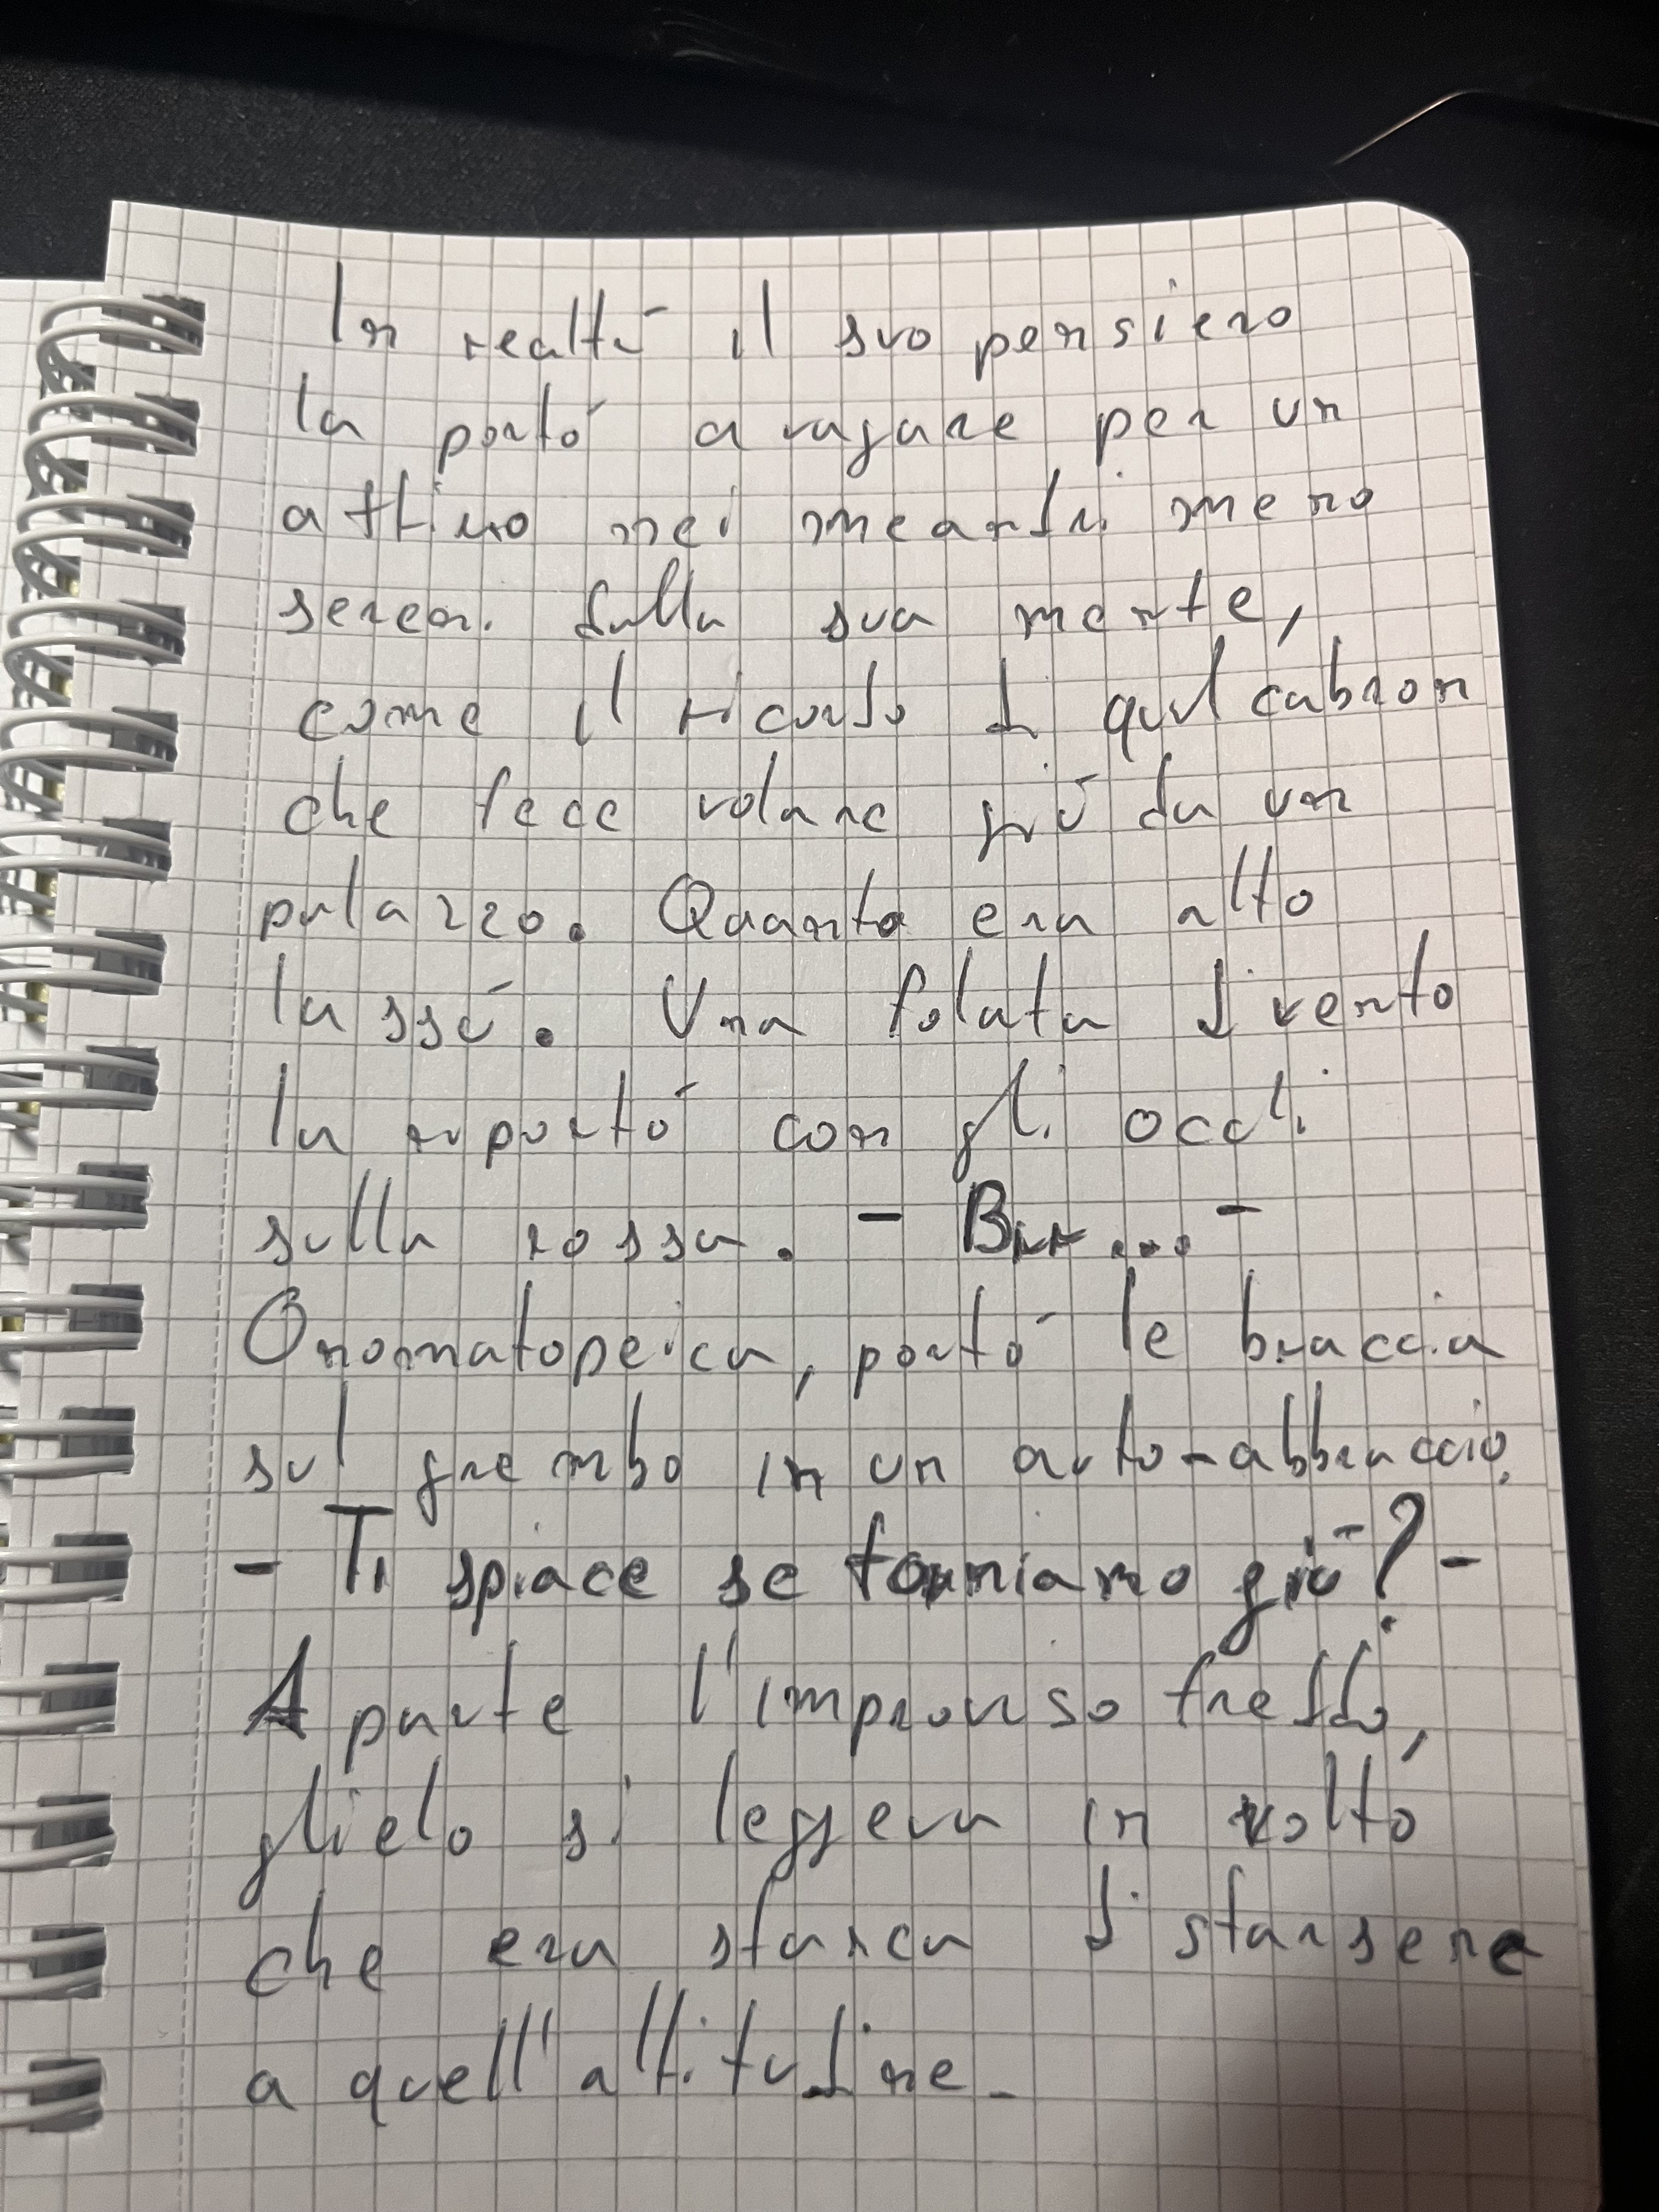 In realtà il suo pensiero
la portò a vagare per un
attimo nei meandri meno
sereni della sua mente,
come il ricordo di quel cabron
che fece volare giù da un
palazzo. Quanto era alto
lassù. Una folata di vento
la riportò con gli occhi
sulla rossa. - Brr... -
Onomatopeica, portò le braccia
sul grembo in un auto-abbraccio.
- Ti spiace se torniamo giù? -
A parte l'improvviso freddo,
glielo si leggeva in volto
che era stanca di starsene
a quell'altitudine.